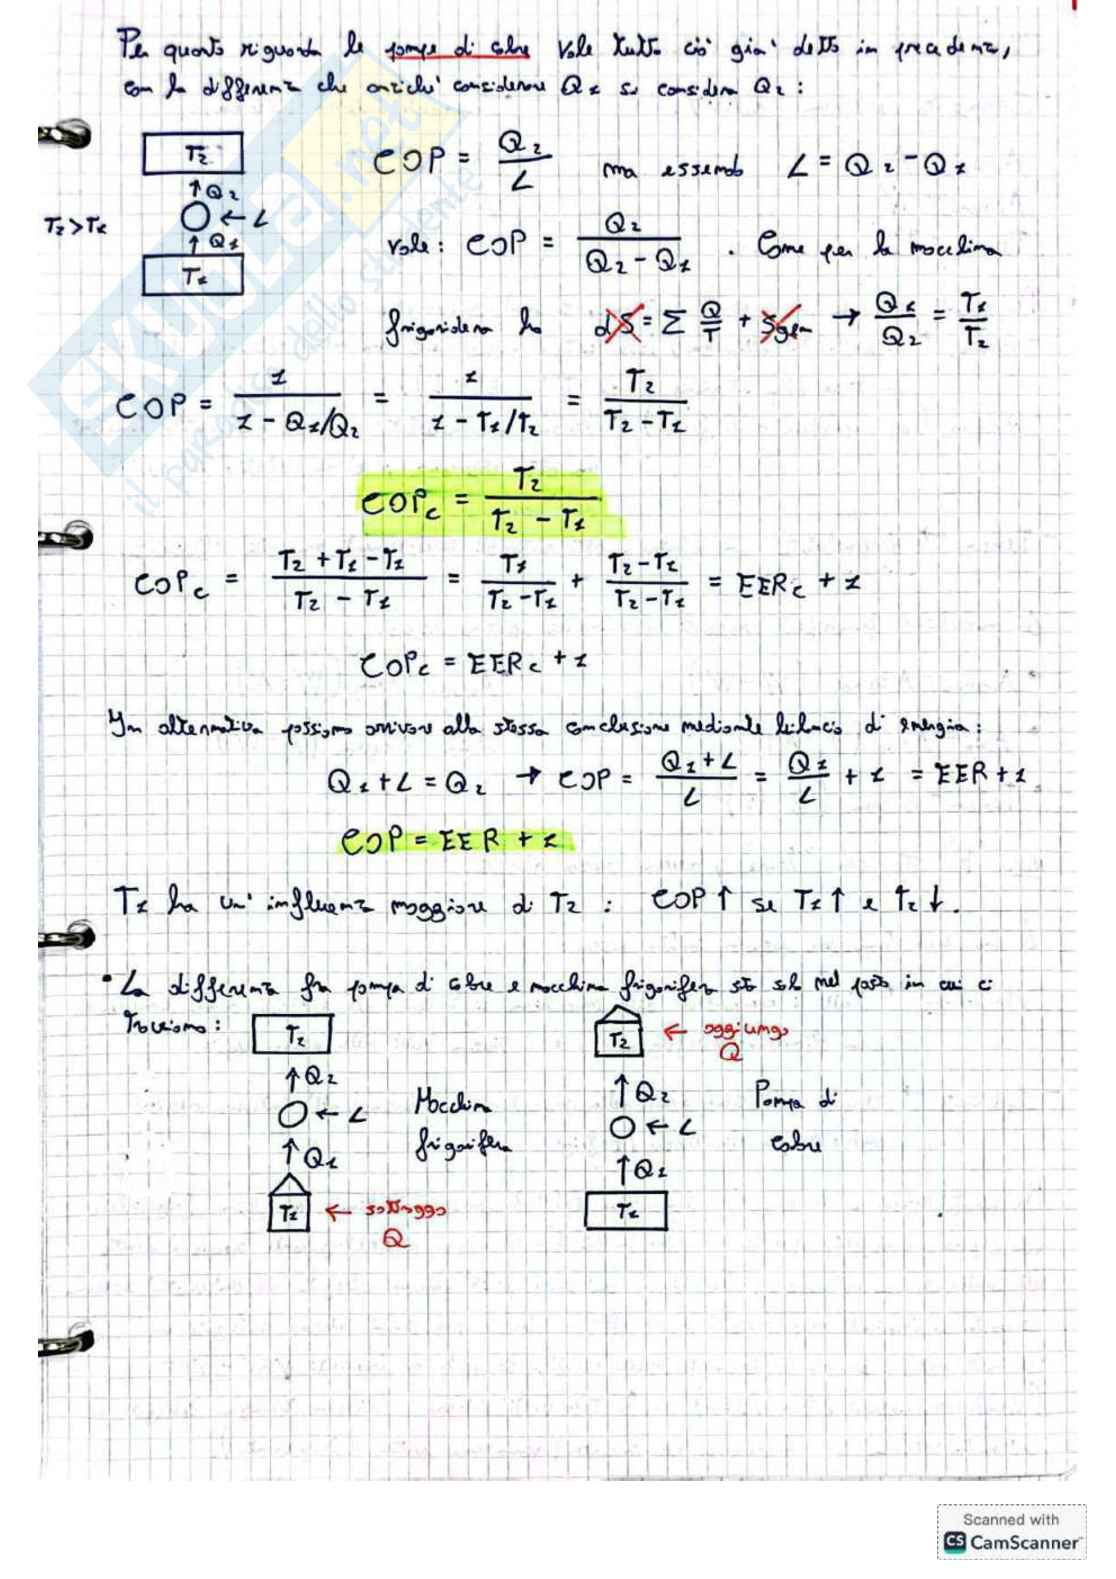 Per quanto riguarda le pompe di calore vale tutto ciò già detto in precedenza,
con la differenza che anziché considerare Q1 si considera Q2 :
T2
↑Q2
← L
T2>T1
↑Q1
T1
COP = Q2/L ma essendo L = Q2 - Q1
vale: COP = Q2/(Q2 - Q1) . Come per la macchina
frigorifera ho dS = Σ Q/T + Sgen → Q1/Q2 = T1/T2
COP = 1/(1 - Q1/Q2) = 1/(1 - T1/T2) = T2/(T2 - T1)
COPc = T2/(T2 - T1)
COPc = (T2 + T1 - T1)/(T2 - T1) = T1/(T2 - T1) + (T2 - T1)/(T2 - T1) = EERc + 1
COPc = EERc + 1
In alternativa possiamo arrivare alla stessa conclusione mediante bilancio di energia :
Q1 + L = Q2 → COP = (Q1 + L)/L = Q1/L + 1 = EER + 1
COP = EER + 1
T1 ha un' influenza maggiore di T2 : COP ↑ se T1 ↑ e T2 ↓.
• La differenza fra pompa di calore e macchina frigorifera sta solo nel posto in cui ci
troviamo :
T2
↑Q2
← L
↑Q1
T1 ← sottraggo Q
Macchina
frigorifera
T2 ← aggiungo Q
↑Q2
← L
↑Q1
T1
Pompa di
calore
SKUOLA.net
il paradiso dello studente
Scanned with
CS CamScanner